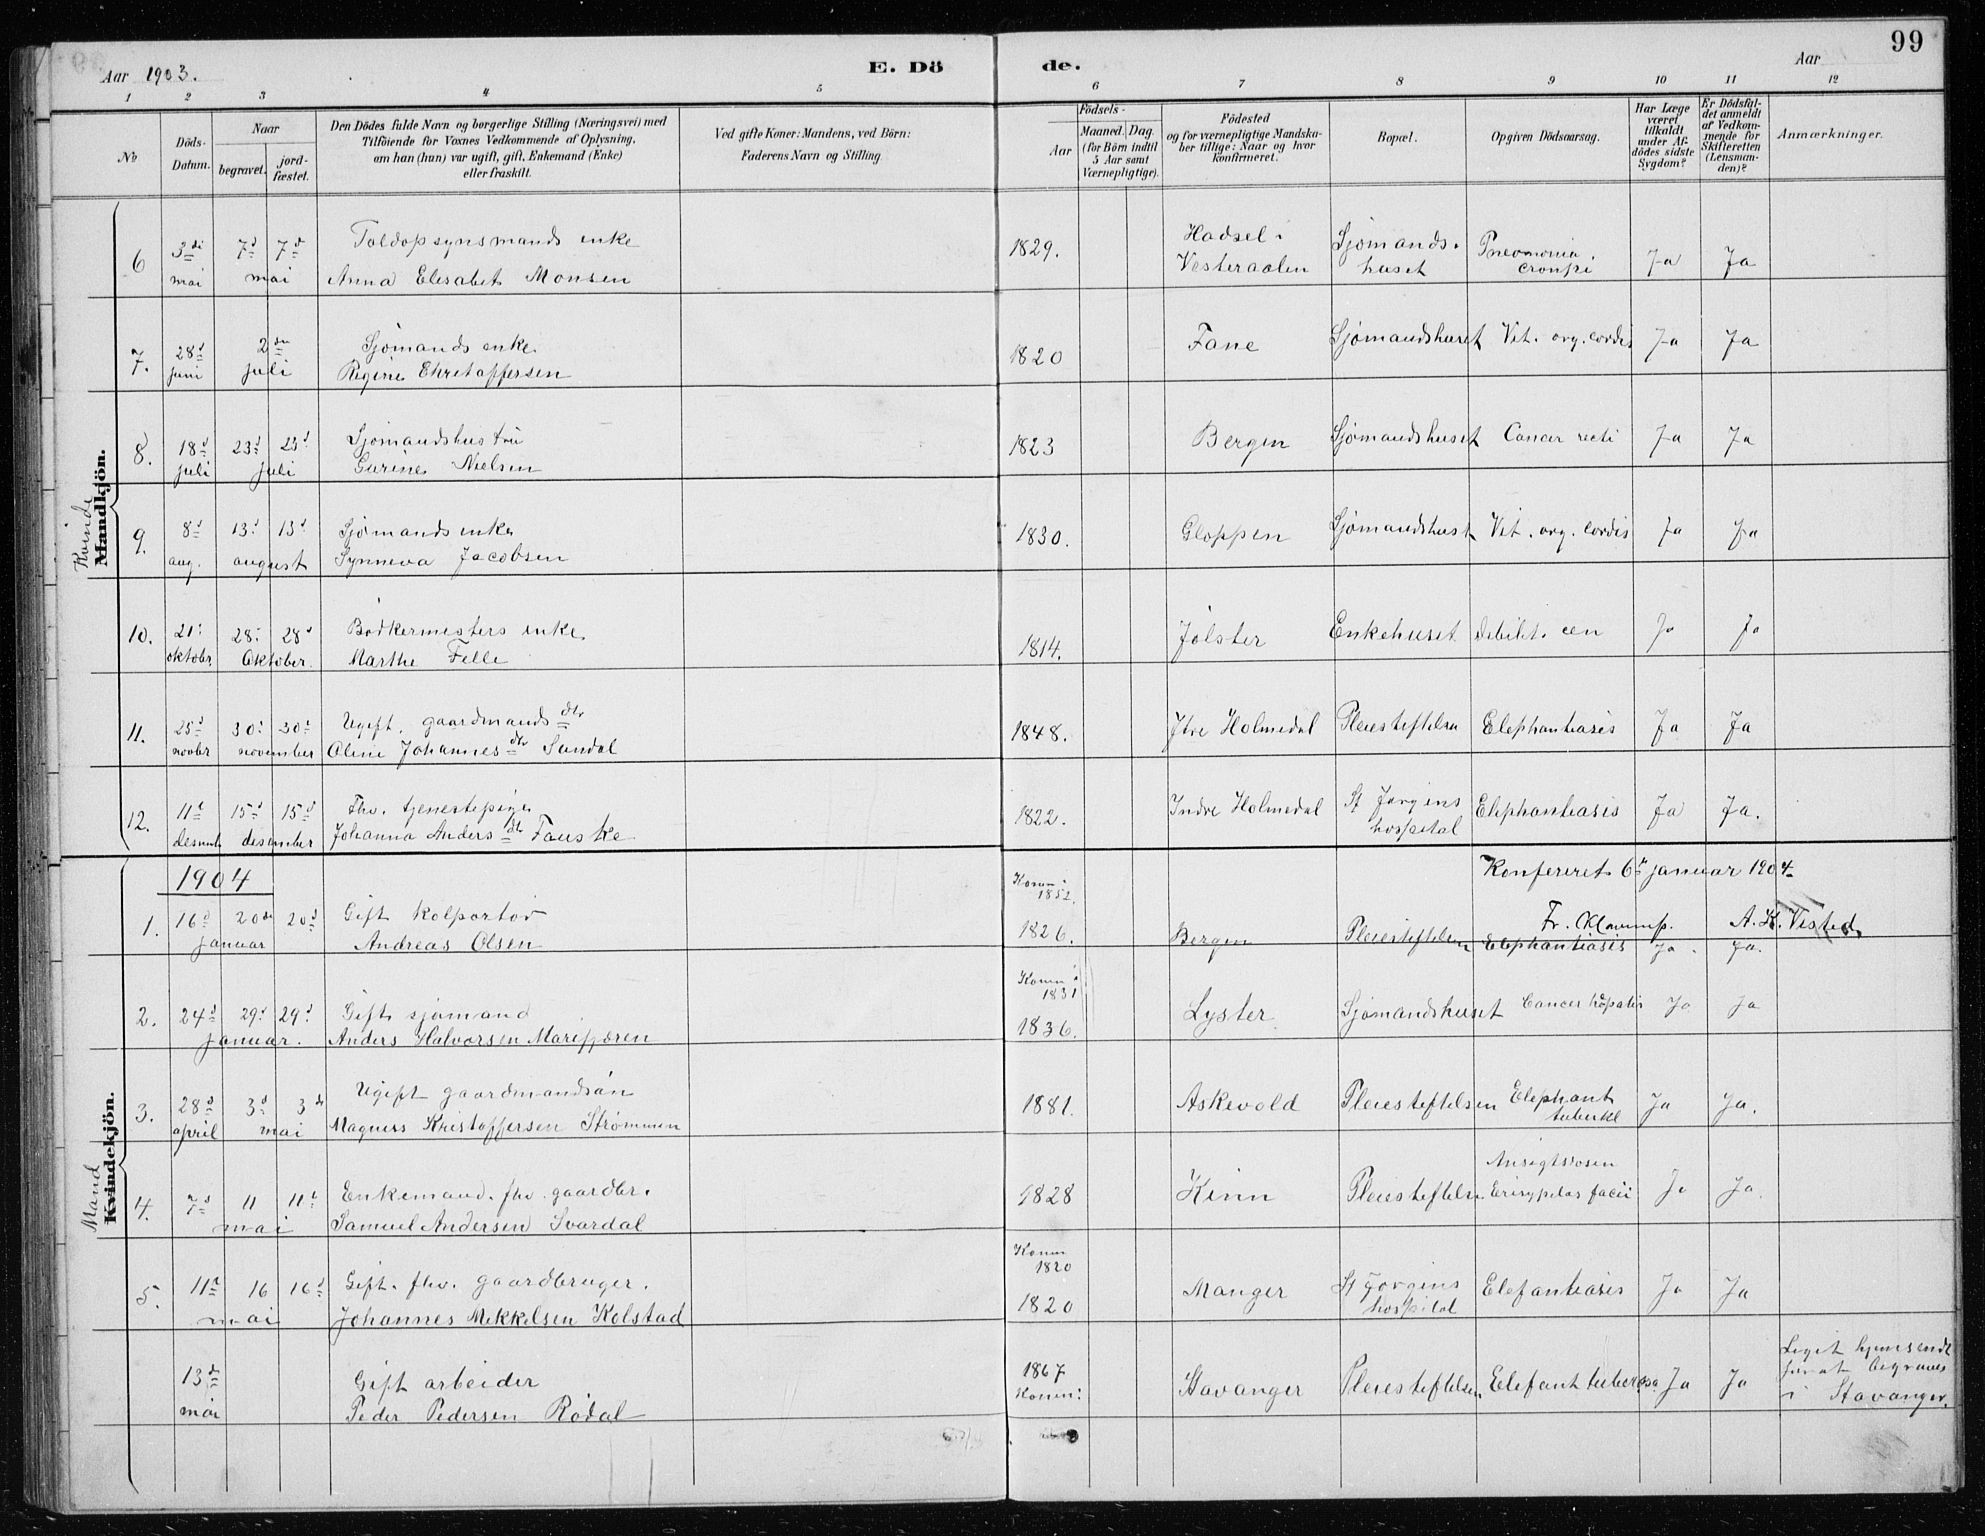 99
Aar 1903.
E. Dö
de.
Aar
1 2 3 4 5 6 7 8 9 10 11 12
No
Döds-Datum.
Naar
begravet.
jord-fæstet.
Den Dödes fulde Navn og borgerlige Stilling (Næringsvei) med
Tilföiende for Voxnes Vedkommende af Oplysning,
om han (hun) var ugift, gift, Enkemand (Enke)
eller fraskilt.
Ved gifte Koner: Mandens, ved Börn:
Faderens Navn og Stilling
Födsels-
Aar
Maaned. Dag.
(for Börn indtil
5 Aar samt
Værnepligtige).
Födested
og for værnepligtige Mandska-
ber tillige: Naar og hvor
konfirmeret.
Bopæl.
Opgiven Dödsaarsag.
Har Læge
været
tilkaldt
under Af-
dödes sidste
Sygdom?
Er Dödsfal-
det anmeldt
af Vedkom-
mende for
Skifteretten
(Lensman-
den)?
Anmærkninger.
Kvinde
Mandkjön.
6 3di mai 7d 7d mai Toldopsynsmands enke
Anna Elesabet Monsen
1829. Hadsel i Vesteraalen Sjømands-huset Pneomonia. croupi Ja Ja
7. 28d juni 2den juli Sjømands enke
Regine Christoffersen
1820 Fane Sjømandshuset Vit. org. cordis Ja Ja
8. 18d juli 23d 23d juli Sjømandshustru
Gurine Nielsen
1823 Bergen Sjømandshuset Cancer recti Ja Ja
9. 8d aug. 13d 13d august Sjømandsenke
Synneva Jacobsen
1830. Gloppen Sjømandshuset Vit. org. cordis Ja Ja
10. 21. oktobr. 28. 28d Oktober. Bødkermesters enke
Marthe Felle
1814. Jølster Enkehuset debilit. sen Ja Ja
11. 25d novbr 30. 30d november Ugift. gaardmands dtr
Oline Johannes dtr Sandal
1848. Ytre Holmedal Pleiestiftelsen Elephantiasis Ja Ja
12. 11t desemb. 15d 15d desember Fhv. tjenestepige
Johanna Anders dtr Fauske
1822. Indre Holmedal St Jørgens hospital Elephantiasis Ja Ja.
1904
Konfereret 6te januar 1904
Fr. Klaump. A. K. Vested.
Mand
Kvindekjön.
1. 16d 20de 20d januar Gift kolportør
Andreas Olsen
Konen: 1852. 1826. Bergen Pleiestiftelsen Elephantiasis Ja. Ja.
2. 24d 29d 29d januar. Gift sjømand
Anders Halvorsen Marifjæren
Konen: 1831 1836. Lyster Sjømandshuset Cancer hepatis Ja Ja
3. 28d april 3d 3de mai Ugift gaardmandsøn
Magnus Kristoffersen Strømmen
1881. Askevold Pleiestiftelsen Elephant tuberkl Ja Ja.
4. 7d 11 11t mai Enkemand. fhv. gaardbr.
Samuel Andersen Svardal
1828 Kinn Pleiestiftelsen Ansigtsrosen Erisypelas facii Ja Ja.
5. 11te 16 16d mai Gift. fhv. gaardbruger.
Johannes Mikkelsen Kolstad
Konen 1820 1820 Manger St Jørgens hospital Elefantiasis Ja Ja
13de mai Gift arbeider
Peder Pedersen Rødal
1867 Konen: Stavanger Pleiestiftelsen Elefant tuberosa Ja Ja
Liget hjemsendt for at begraves i Stavanger.